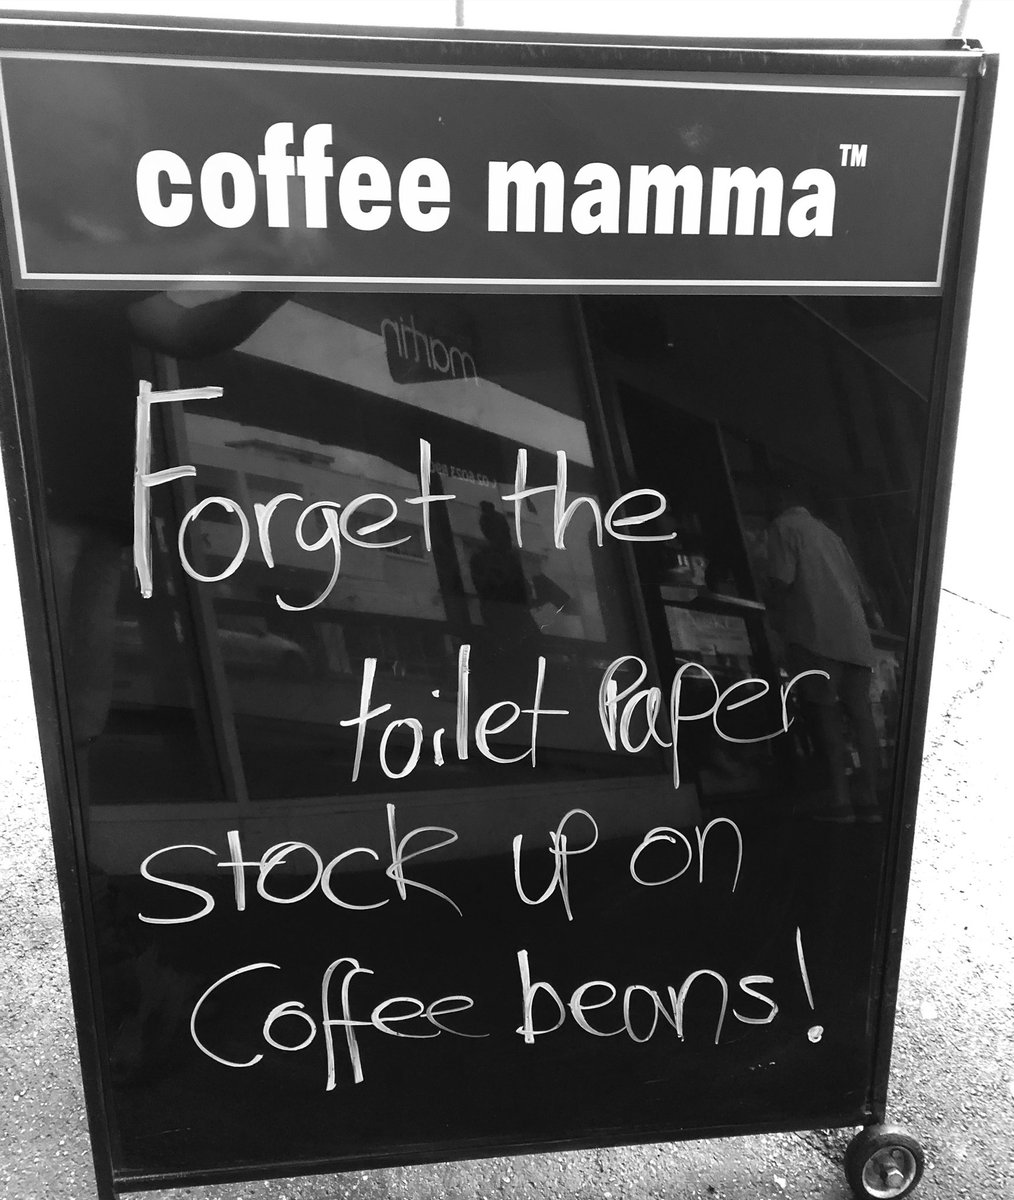 coffee mamma™
martin
Forget the
toilet Paper
stock up on
Coffee beans!